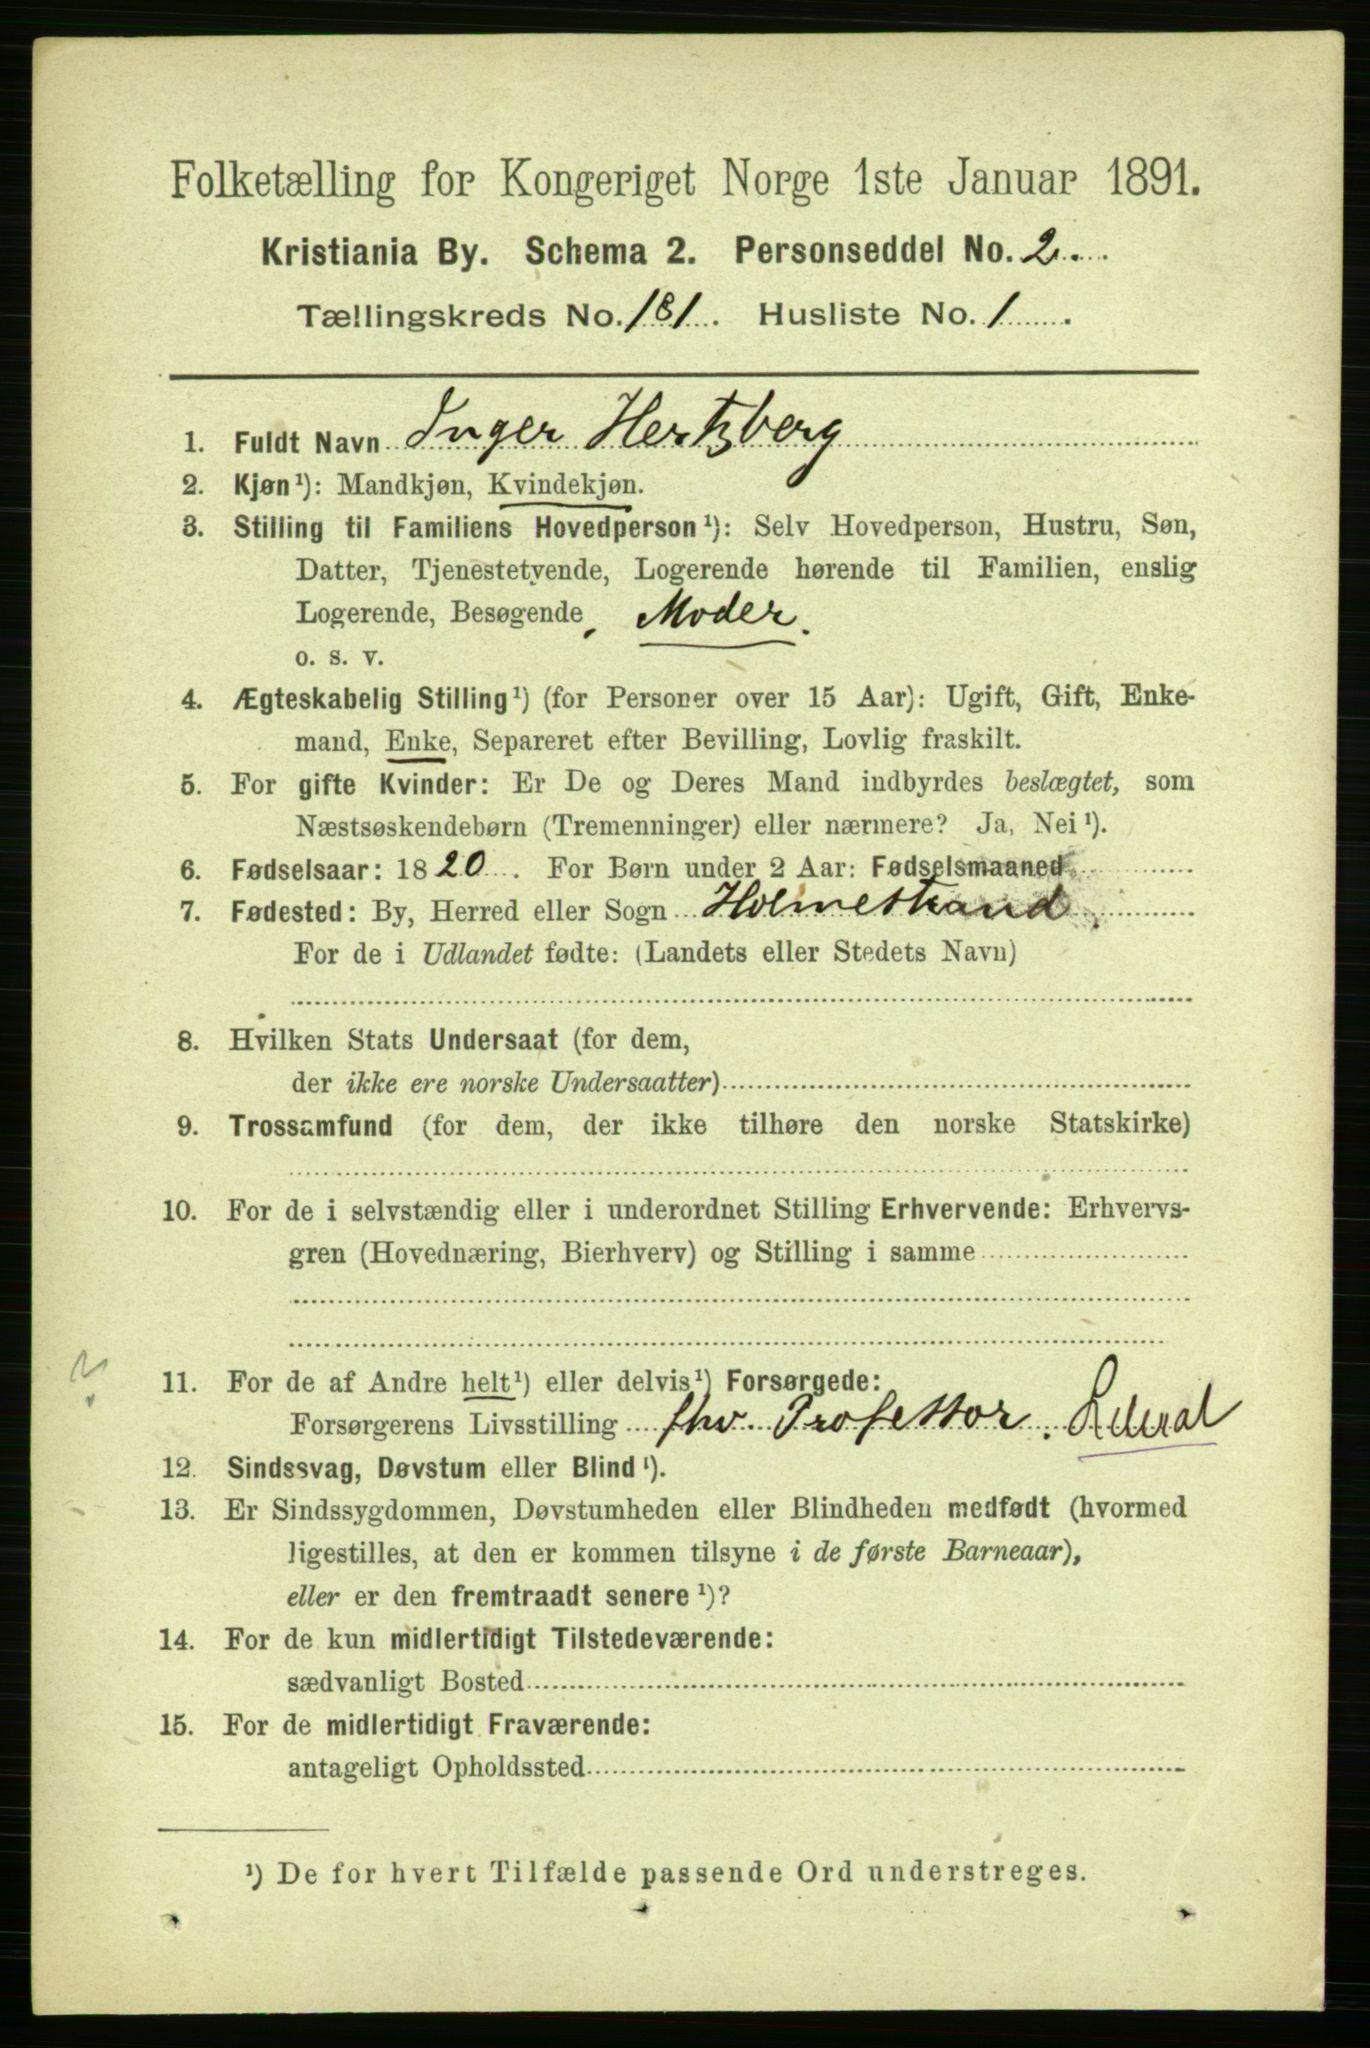 Folketælling for Kongeriget Norge 1ste Januar 1891.
Kristiania By. Schema 2. Personseddel No. 2.
Tællingskreds No. 181. Husliste No. 1.
1. Fuldt Navn Inger Hertzberg
2. Kjøn¹): Mandkjøn, Kvindekjøn.
3. Stilling til Familiens Hovedperson¹): Selv Hovedperson, Hustru, Søn,
Datter, Tjenestetyende, Logerende hørende til Familien, enslig
Logerende, Besøgende, Moder.
o. s. v.
4. Ægteskabelig Stilling¹) (for Personer over 15 Aar): Ugift, Gift, Enke-
mand, Enke, Separeret efter Bevilling, Lovlig fraskilt.
5. For gifte Kvinder: Er De og Deres Mand indbyrdes beslægtet, som
Næstsøskendebørn (Tremenninger) eller nærmere? Ja, Nei¹).
6. Fødselsaar: 1820. For Børn under 2 Aar: Fødselsmaaned
7. Fødested: By, Herred eller Sogn Holmestrand
For de i Udlandet fødte: (Landets eller Stedets Navn)
8. Hvilken Stats Undersaat (for dem,
der ikke ere norske Undersaatter)
9. Trossamfund (for dem, der ikke tilhøre den norske Statskirke)
10. For de i selvstændig eller i underordnet Stilling Erhvervende: Erhvervs-
gren (Hovednæring, Bierhverv) og Stilling i samme
11. For de af Andre helt¹) eller delvis¹) Forsørgede:
Forsørgerens Livsstilling fhv. Professor.
12. Sindssvag, Døvstum eller Blind¹).
13. Er Sindssygdommen, Døvstumheden eller Blindheden medfødt (hvormed
ligestilles, at den er kommen tilsyne i de første Barneaar),
eller er den fremtraadt senere¹)?
14. For de kun midlertidigt Tilstedeværende:
sædvanligt Bosted
15. For de midlertidigt Fraværende:
antageligt Opholdssted
¹) De for hvert Tilfælde passende Ord understreges.